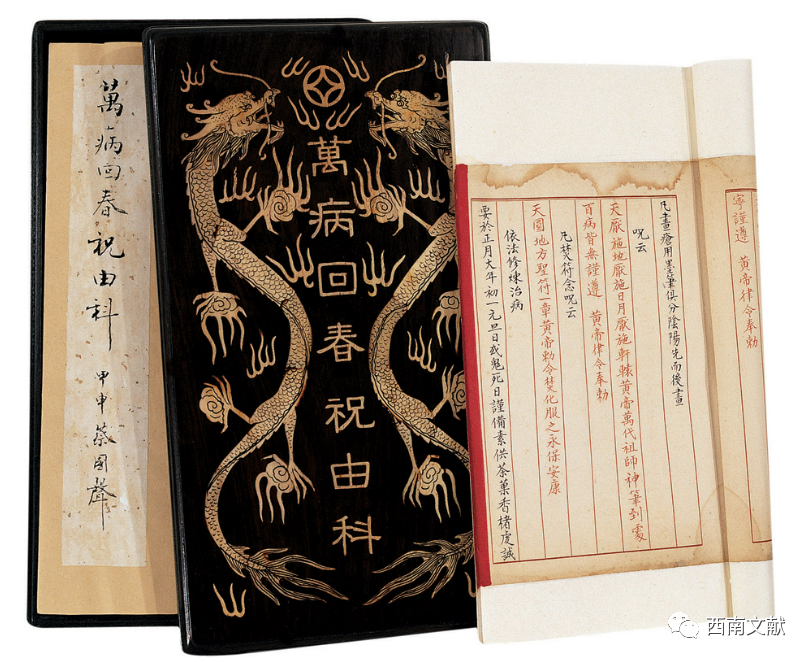 萬病回春祝由科 甲申 蔡國聲
萬病回春祝由科
寧謹遵 黃帝律令奉勅
凡畫瘡用墨筆俱分陰陽先而後畫
呪云
天厭施地厭施日月厭施軒轅黃帝萬代祖師神筆到處
百病皆無謹遵 黃帝律令奉勅
凡焚符念呪云
天圓地方聖符一章黃帝勅令焚化服之永保安康
依法修煉治病
要於正月大年初一元旦日或鬼死日謹備素供茶菓香楮虔誠
西南文献